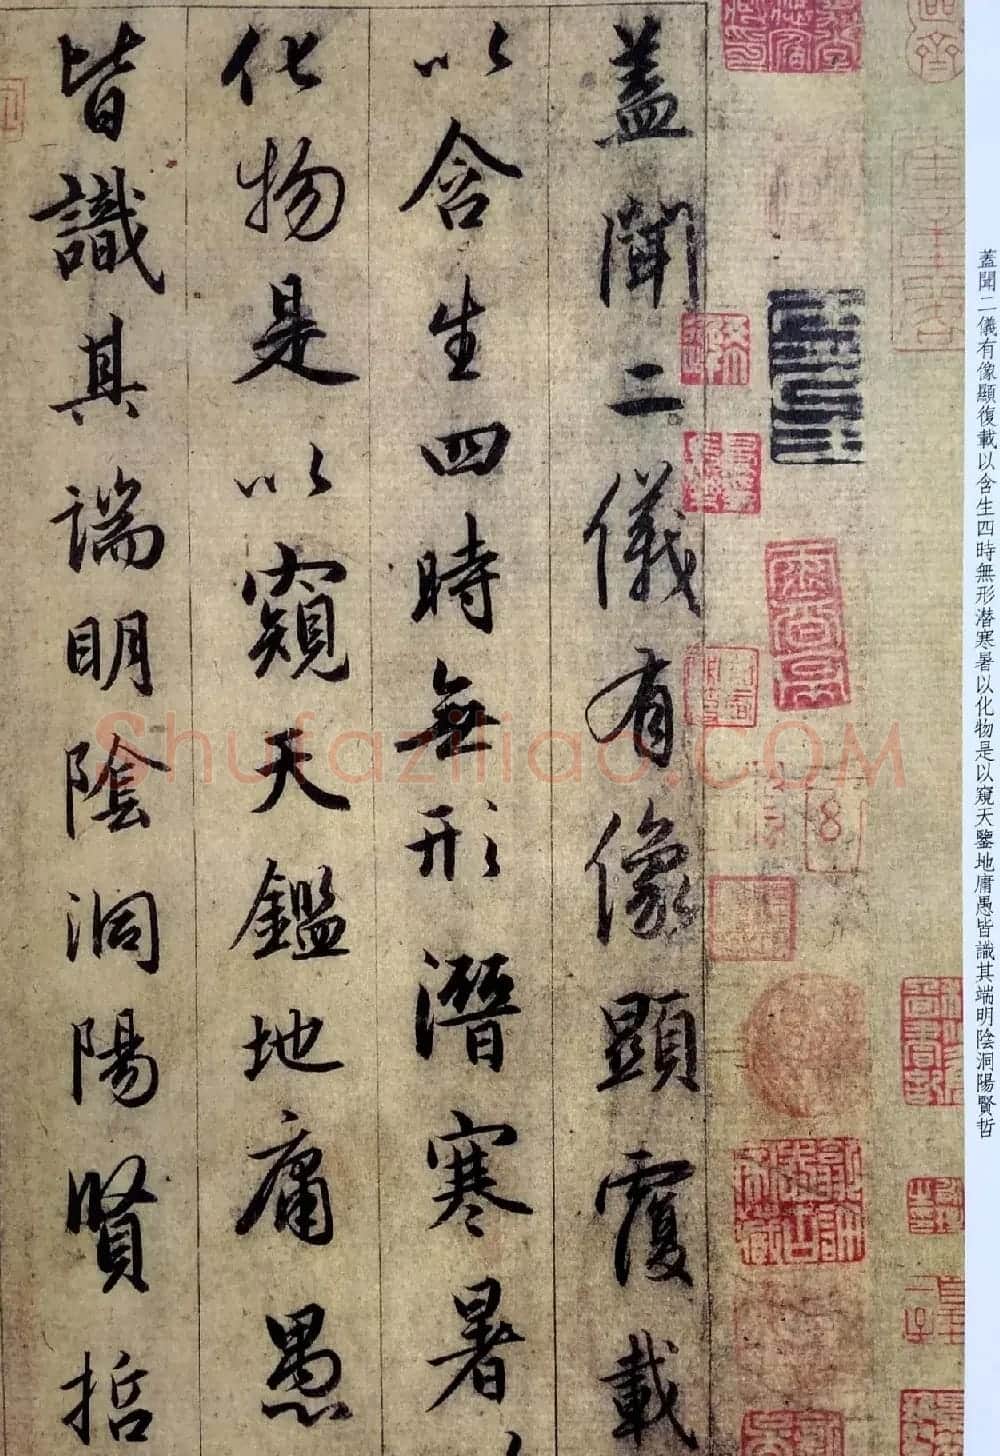 蓋聞二儀有像顯復載以含生四時無形潜寒暑以化物是以窺天鑒地庸愚皆識其端明陰洞陽賢哲
蓋聞二儀有像顯覆載
以含生四時無形潛寒暑
化物是以窺天鑑地庸愚
皆識其端明陰洞陽賢哲
Shufaziliao.COM